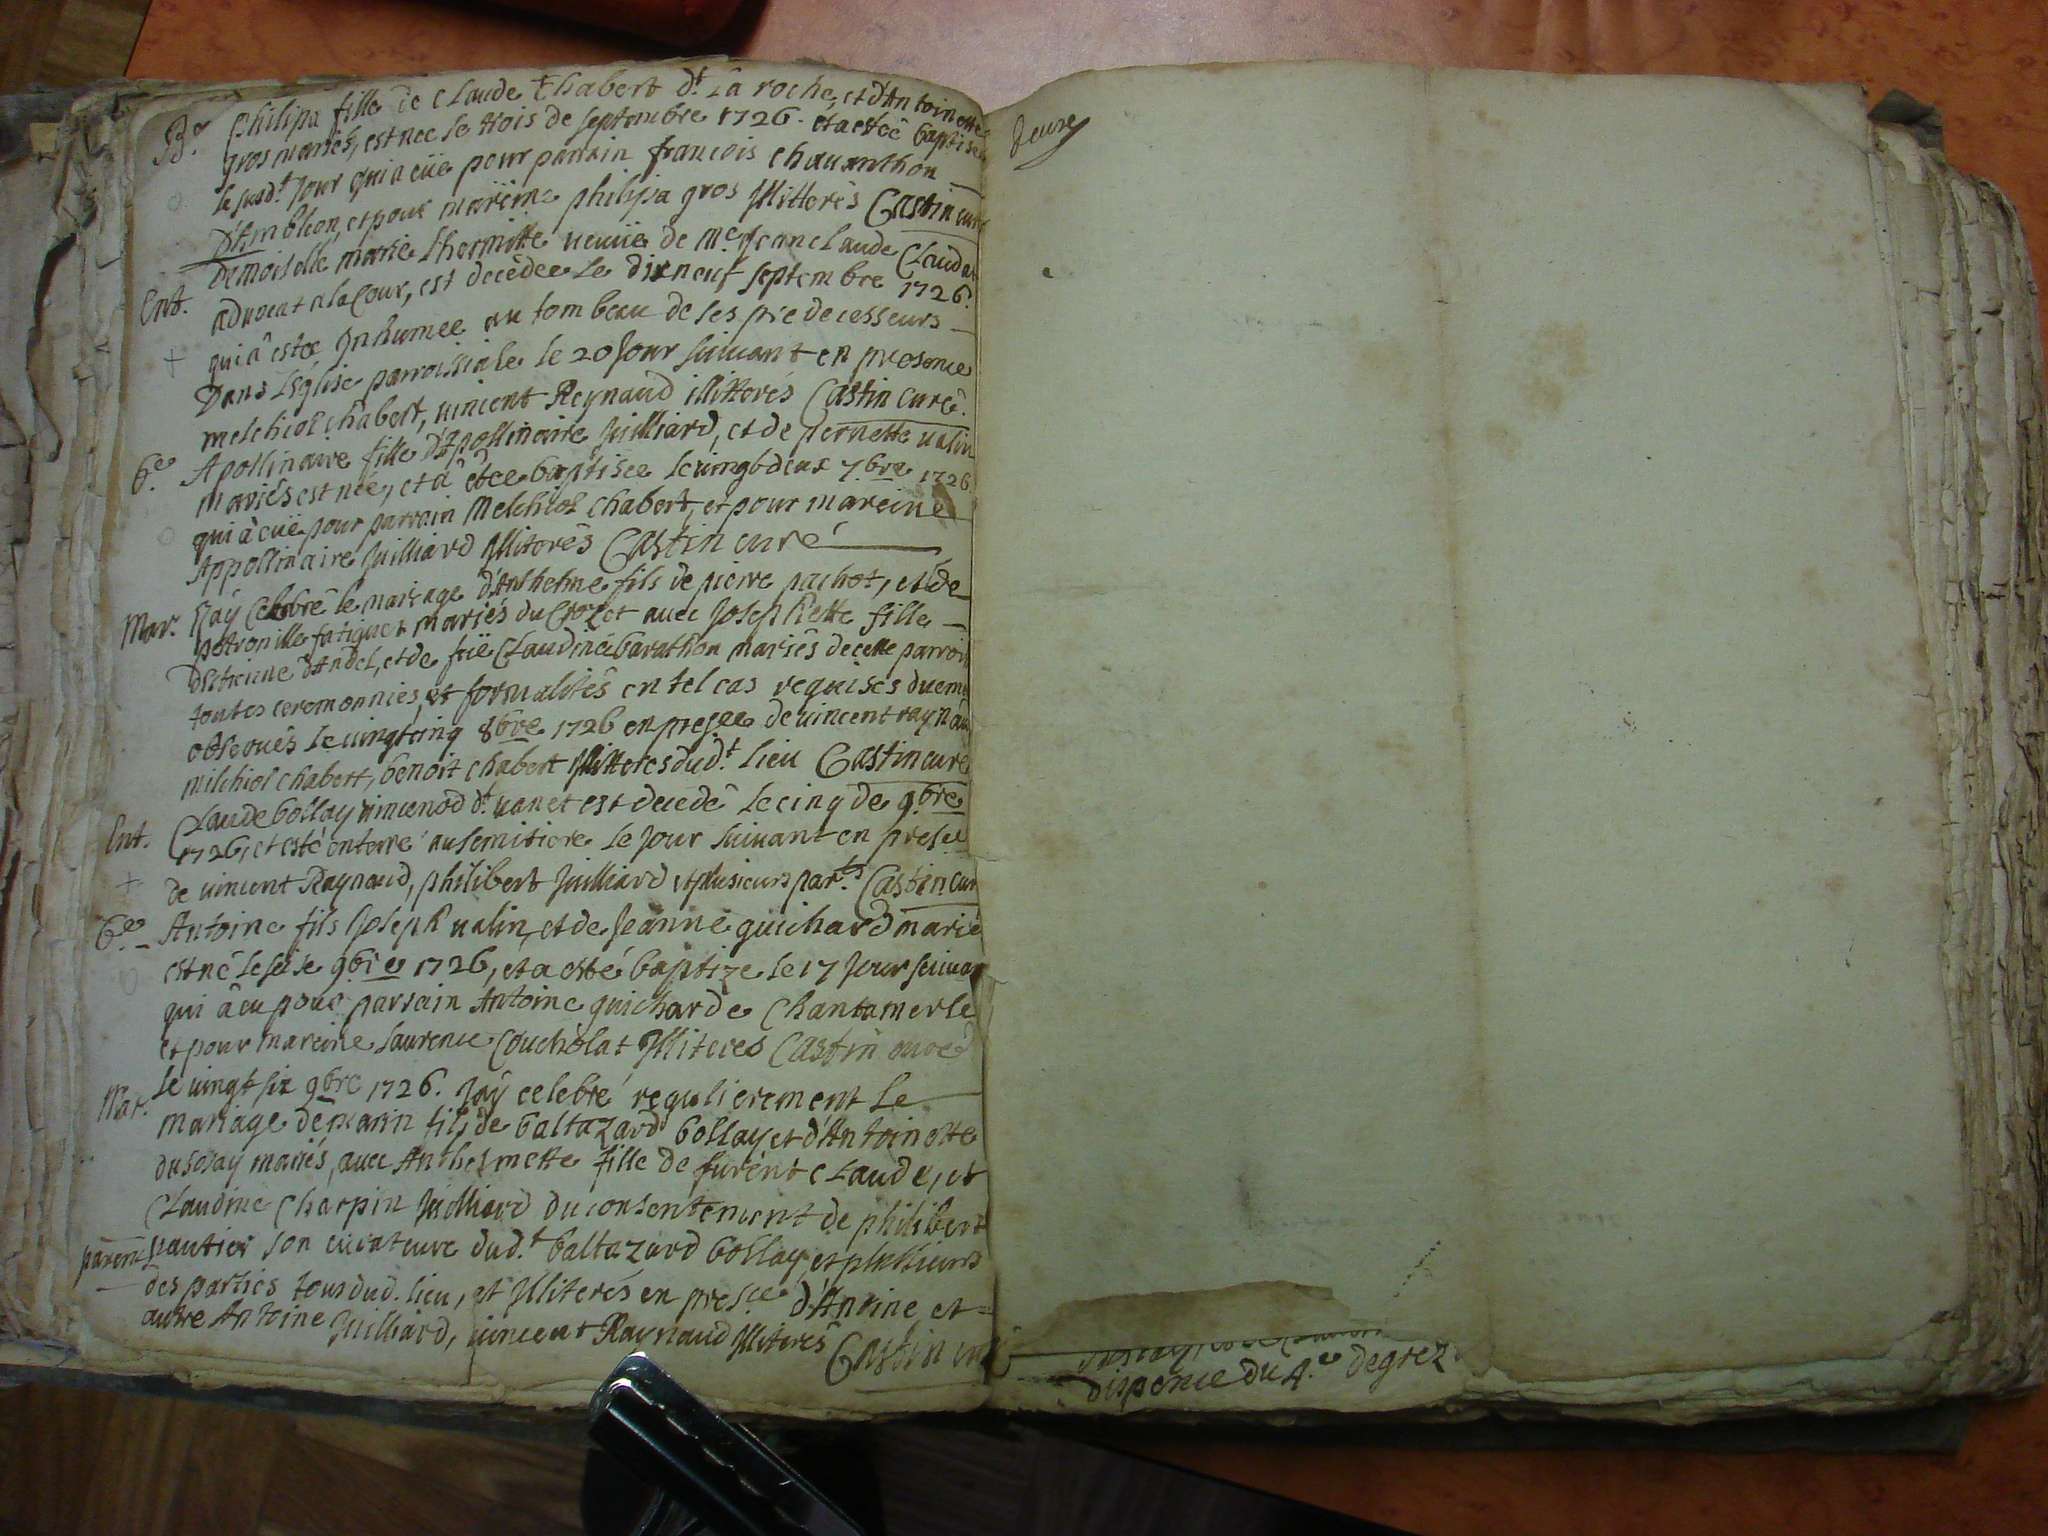 B.e Philipa fille de Claude Chabert d.t La roche, et d'Antoinette
gros mariés, est née le trois de septembre 1726. et a estée baptisée
le susd.t jour qui a eüe pour parrain francois chauanthon
D'Ambleon, et pour mareine philipa gros Jllitterés Castin curé
Ent. Demoiselle marie Lhermitte ueuue de M.e Jean claude Claudat
aduocat a la Cour, est decedee Le dixneuf septembre 1726.
qui â estee Jnhumee au tombeau de ses predecesseurs
Dans L'Eglise parroissiale le 20 Jour suiuant en presence
melchiol chabert, uincent Reynaud illitterés Castin curé.
b.e Apollinaire fille D'Apollinaire Juilliard, et de pernette ualin
mariés est née, et â étée baptisee le uingt deux 7.bre 1726
qui â eüe pour parrain Melchiol Chabert, et pour mareine
Appollinaire Juilliard Jlliterés Castin curé
Mar. J'ay Celebré le mariage d'Anthelme fils de pierre pachot, et de
petronille fatiguet mariés du Crozet auec Josephette fille
D'etienne d'Andel, et de füe Claudine barathon mariés de cette parroisse
toutes ceremonnies, et formalités en tel cas requises duem.t
obserués le uingtcinq 8bre 1726 en pres.ce de uincent raynaud
milchiol chabert, benoit chabert Jllitteres dud.t lieu Castin curé
Ent. Claude bollay uincenod d.t uanet est decedé le cinq de 9.bre
1726, et esté enterré au semitiere le Jour suiuant en presce
de uincent Raynaud, philibert Juilliard et plusieurs par.ts Castin cur
b.e Antoine fils Joseph ualin, et de Jeanne guichard marié
est né le seise 9bre 1726, et a esté baptize le 17 Jour suiuan
qui â eu pour parrain Antoine guichard de Chantemerle
et pour mareine Laurence Coucholat Jlliteres Castin curé
Mar. Le uingt six 9bre 1726. J'ay celebré regulierement le
mariage de marin fils de baltazard bollay et d'Antoinette
dusoay mariés, auec Anthelmette fille de furent Claude, et
Claudine Charpin Juilliard du consentement de philibert
parent gautier son curateure dud.t baltazard bollay, et plusieurs
des parties tous dud. lieu, et Jlliterés en presce d'Antoine et
autre Antoine Juilliard, uincent Raynaud Jlliterés Castin cu
dispence du 4.e degrez